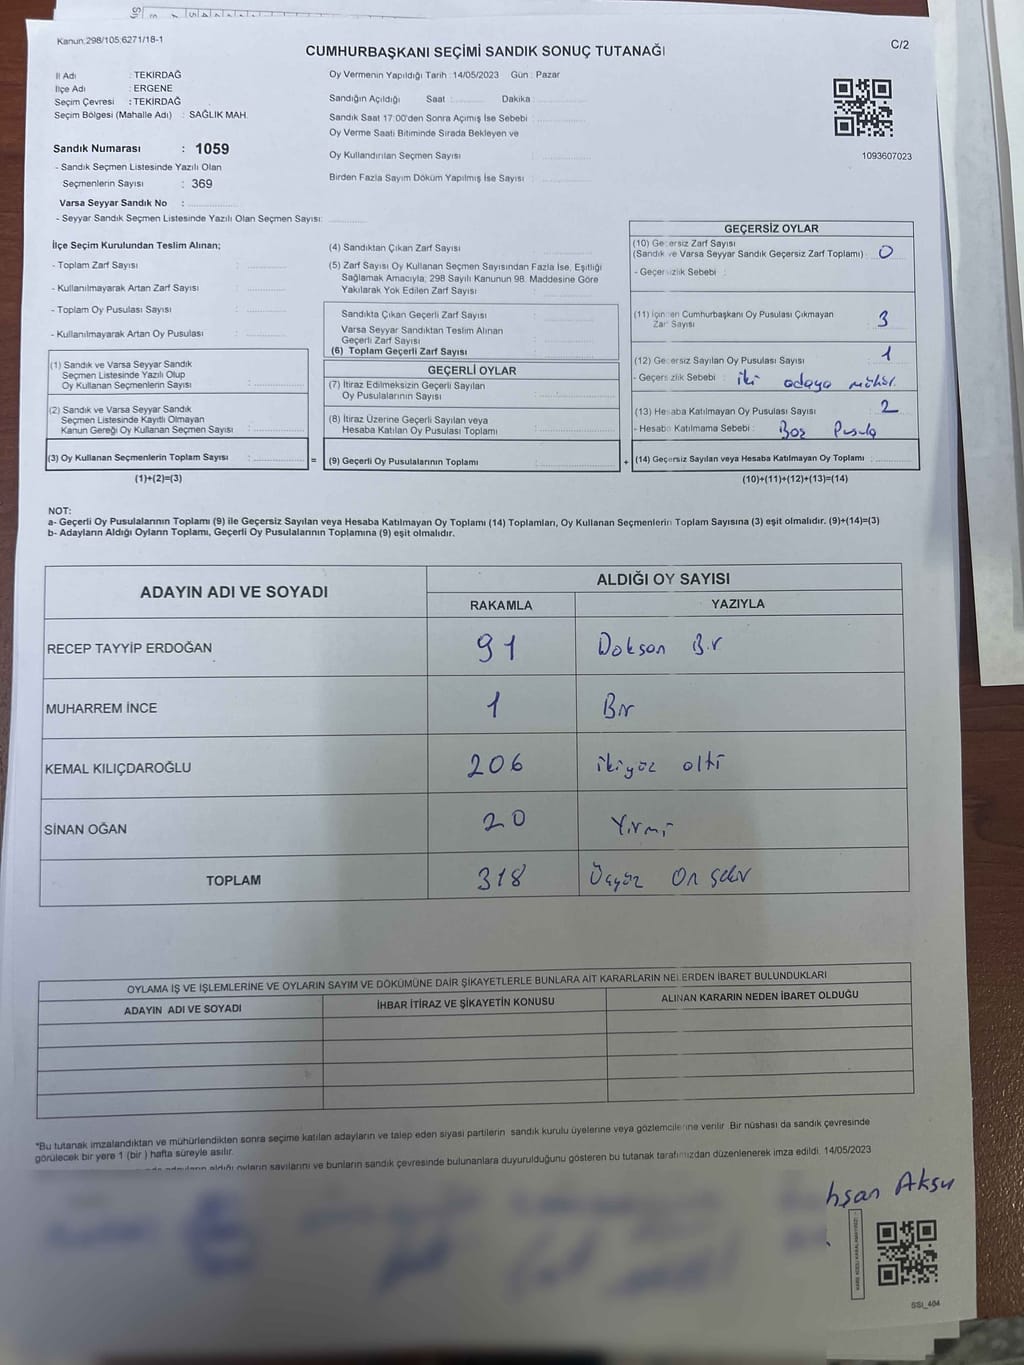 Kanun:298/105;6271/18-1
CUMHURBAŞKANI SEÇİMİ SANDIK SONUÇ TUTANAĞI
C/2
İl Adı : TEKİRDAĞ
İlçe Adı : ERGENE
Seçim Çevresi : TEKİRDAĞ
Seçim Bölgesi (Mahalle Adı) : SAĞLIK MAH.
Sandık Numarası : 1059
- Sandık Seçmen Listesinde Yazılı Olan
Seçmenlerin Sayısı : 369
Varsa Seyyar Sandık No :
- Seyyar Sandık Seçmen Listesinde Yazılı Olan Seçmen Sayısı:
Oy Vermenin Yapıldığı Tarih : 14/05/2023 Gün : Pazar
Sandığın Açıldığı Saat : Dakika :
Sandık Saat 17:00'den Sonra Açımış İse Sebebi :
Oy Verme Saati Bitiminde Sırada Bekleyen ve
Oy Kullandırılan Seçmen Sayısı :
Birden Fazla Sayım Döküm Yapılmış İse Sayısı :
1093607023
İlçe Seçim Kurulundan Teslim Alınan;
- Toplam Zarf Sayısı :
- Kullanılmayarak Artan Zarf Sayısı :
- Toplam Oy Pusulası Sayısı :
- Kullanılmayarak Artan Oy Pusulası :
(1) Sandık ve Varsa Seyyar Sandık
Seçmen Listesinde Yazılı Olup
Oy Kullanan Seçmenlerin Sayısı :
(2) Sandık ve Varsa Seyyar Sandık
Seçmen Listesinde Kayıtlı Olmayan
Kanun Gereği Oy Kullanan Seçmen Sayısı :
(3) Oy Kullanan Seçmenlerin Toplam Sayısı :
(1)+(2)=(3)
(4) Sandıktan Çıkan Zarf Sayısı
(5) Zarf Sayısı Oy Kullanan Seçmen Sayısından Fazla İse, Eşitliği
Sağlamak Amacıyla; 298 Sayılı Kanunun 98. Maddesine Göre
Yakılarak Yok Edilen Zarf Sayısı :
Sandıkta Çıkan Geçerli Zarf Sayısı :
Varsa Seyyar Sandıktan Teslim Alınan
Geçerli Zarf Sayısı :
(6) Toplam Geçerli Zarf Sayısı :
GEÇERLİ OYLAR
(7) İtiraz Edilmeksizin Geçerli Sayılan
Oy Pusulalarının Sayısı :
(8) İtiraz Üzerine Geçerli Sayılan veya
Hesaba Katılan Oy Pusulası Toplamı :
= (9) Geçerli Oy Pusulalarının Toplamı :
GEÇERSİZ OYLAR
(10) Geçersiz Zarf Sayısı
(Sandık ve Varsa Seyyar Sandık Geçersiz Zarf Toplamı) : 0
- Geçersizlik Sebebi :
(11) İçinden Cumhurbaşkanı Oy Pusulası Çıkmayan
Zarf Sayısı : 3
(12) Geçersiz Sayılan Oy Pusulası Sayısı : 1
- Geçersizlik Sebebi : iki adaya mühür.
(13) Hesaba Katılmayan Oy Pusulası Sayısı : 2
- Hesaba Katılmama Sebebi : Boş Pusula
+ (14) Geçersiz Sayılan veya Hesaba Katılmayan Oy Toplamı :
(10)+(11)+(12)+(13)=(14)
NOT:
a- Geçerli Oy Pusulalarının Toplamı (9) ile Geçersiz Sayılan veya Hesaba Katılmayan Oy Toplamı (14) Toplamları, Oy Kullanan Seçmenlerin Toplam Sayısına (3) eşit olmalıdır. (9)+(14)=(3)
b- Adayların Aldığı Oyların Toplamı, Geçerli Oy Pusulalarının Toplamına (9) eşit olmalıdır.
ADAYIN ADI VE SOYADI
ALDIĞI OY SAYISI
RAKAMLA YAZIYLA
RECEP TAYYİP ERDOĞAN 91 Doksan Bir
MUHARREM İNCE 1 Bir
KEMAL KILIÇDAROĞLU 206 ikiyüz altı
SİNAN OĞAN 20 Yirmi
TOPLAM 318 Üçyüz On sekiz
OYLAMA İŞ VE İŞLEMLERİNE VE OYLARIN SAYIM VE DÖKÜMÜNE DAİR ŞİKAYETLERLE BUNLARA AİT KARARLARIN NELERDEN İBARET BULUNDUKLARI
ADAYIN ADI VE SOYADI
İHBAR İTİRAZ VE ŞİKAYETİN KONUSU
ALINAN KARARIN NEDEN İBARET OLDUĞU
*Bu tutanak imzalandıktan ve mühürlendikten sonra seçime katılan adayların ve talep eden siyasi partilerin sandık kurulu üyelerine veya gözlemcilerine verilir. Bir nüshası da sandık çevresinde
görülecek bir yere 1 (bir ) hafta süreyle asılır.
aldığı oyların sayılarını ve bunların sandık çevresinde bulunanlara duyurulduğunu gösteren bu tutanak tarafımızdan düzenlenerek imza edildi. 14/05/2023
hsan Aksu
SSİ_404